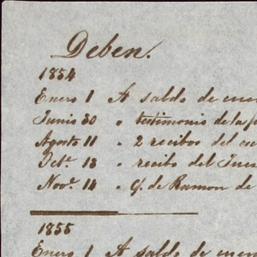 Deben.
1854
Enero 1 A saldo de cuen
Junio 30 " testimonio de la
Agosto 11 " 2 recibos del
Octe. 13 " recibo del Jues
Nove. 14 " G. de Ramon de
1855
Enero 1 A saldo de cuen